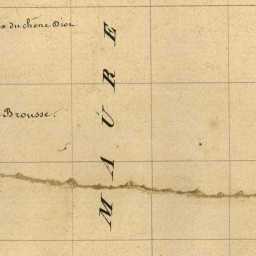 du chêne Dior
Brousse.
MAURE